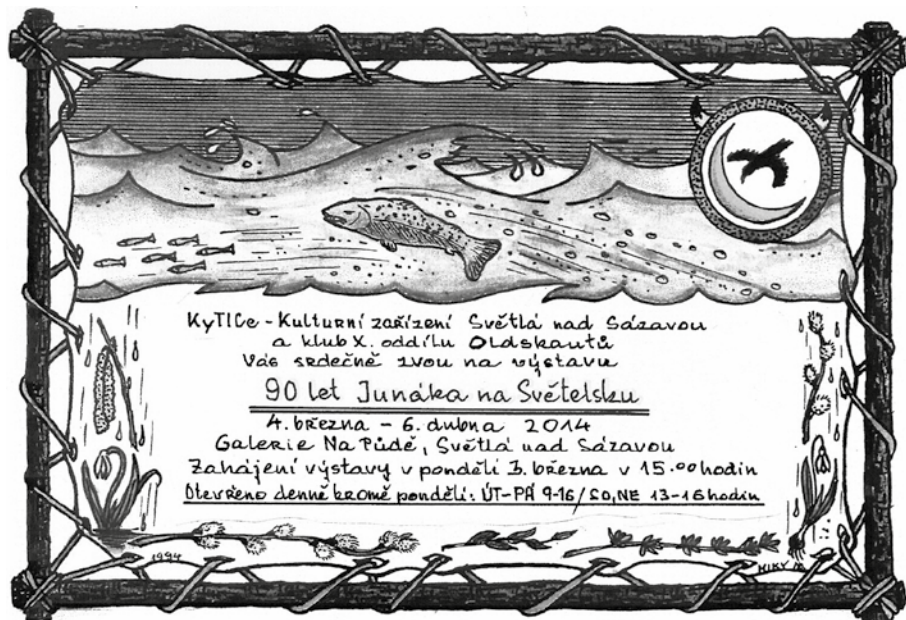 KyTICe - Kulturní zařízení Světlá nad Sázavou
a klub X. oddílu Oldskautů
Vás srdečně zvou na výstavu
90 let Junáka na Světelsku
4. března - 6. dubna 2014
Galerie Na Půdě, Světlá nad Sázavou
Zahájení výstavy v pondělí 3. března v 15.00 hodin
Otevřeno denně kromě pondělí: ÚT-PÁ 9-16/SO,NE 13-16 hodin
1994